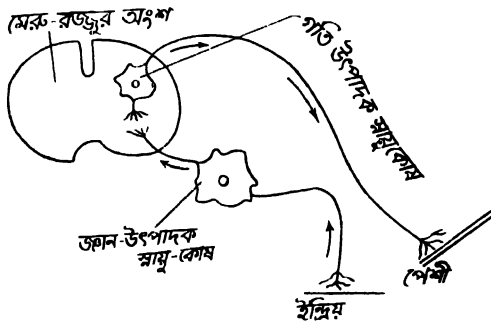 মেরু-রজ্জুর অংশ
গতি উৎপাদক স্নায়ুকোষ
জ্ঞান-উৎপাদক
স্নায়ু-কোষ
পেশী
ইন্দ্রিয়